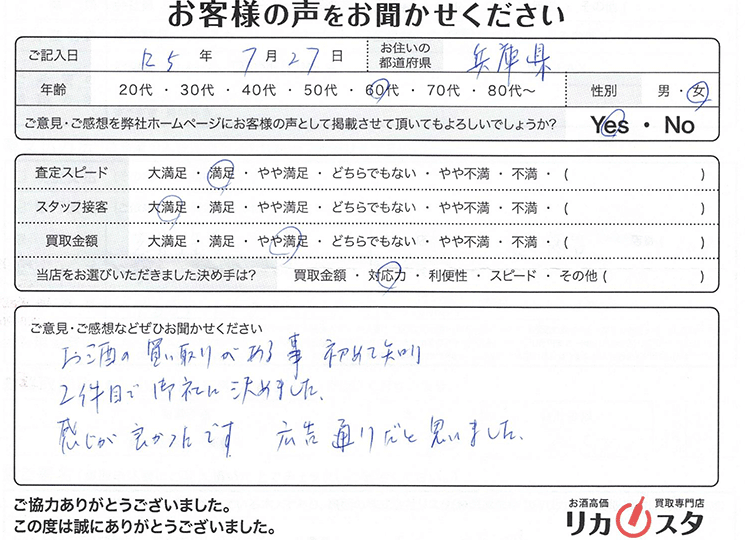 お客様の声をお聞かせください
ご記入日 R5 年 7 月 27 日 お住いの都道府県 兵庫県
年齢 20代 ・ 30代 ・ 40代 ・ 50代 ・ 60代 ・ 70代 ・ 80代〜 性別 男 ・ 女
ご意見・ご感想を弊社ホームページにお客様の声として掲載させて頂いてもよろしいでしょうか? Yes ・ No
査定スピード 大満足 ・ 満足 ・ やや満足 ・ どちらでもない ・ やや不満 ・ 不満 ・ ( )
スタッフ接客 大満足 ・ 満足 ・ やや満足 ・ どちらでもない ・ やや不満 ・ 不満 ・ ( )
買取金額 大満足 ・ 満足 ・ やや満足 ・ どちらでもない ・ やや不満 ・ 不満 ・ ( )
当店をお選びいただきました決め手は? 買取金額 ・ 対応力 ・ 利便性 ・ スピード ・ その他 ( )
ご意見・ご感想などぜひお聞かせください
お酒の買い取りがある事 初めて知り
2件目で御社に決めました。
感じが良かったです 広告通りだと思いました。
ご協力ありがとうございました。
この度は誠にありがとうございました。
お酒高価 買取専門店
リカスタ